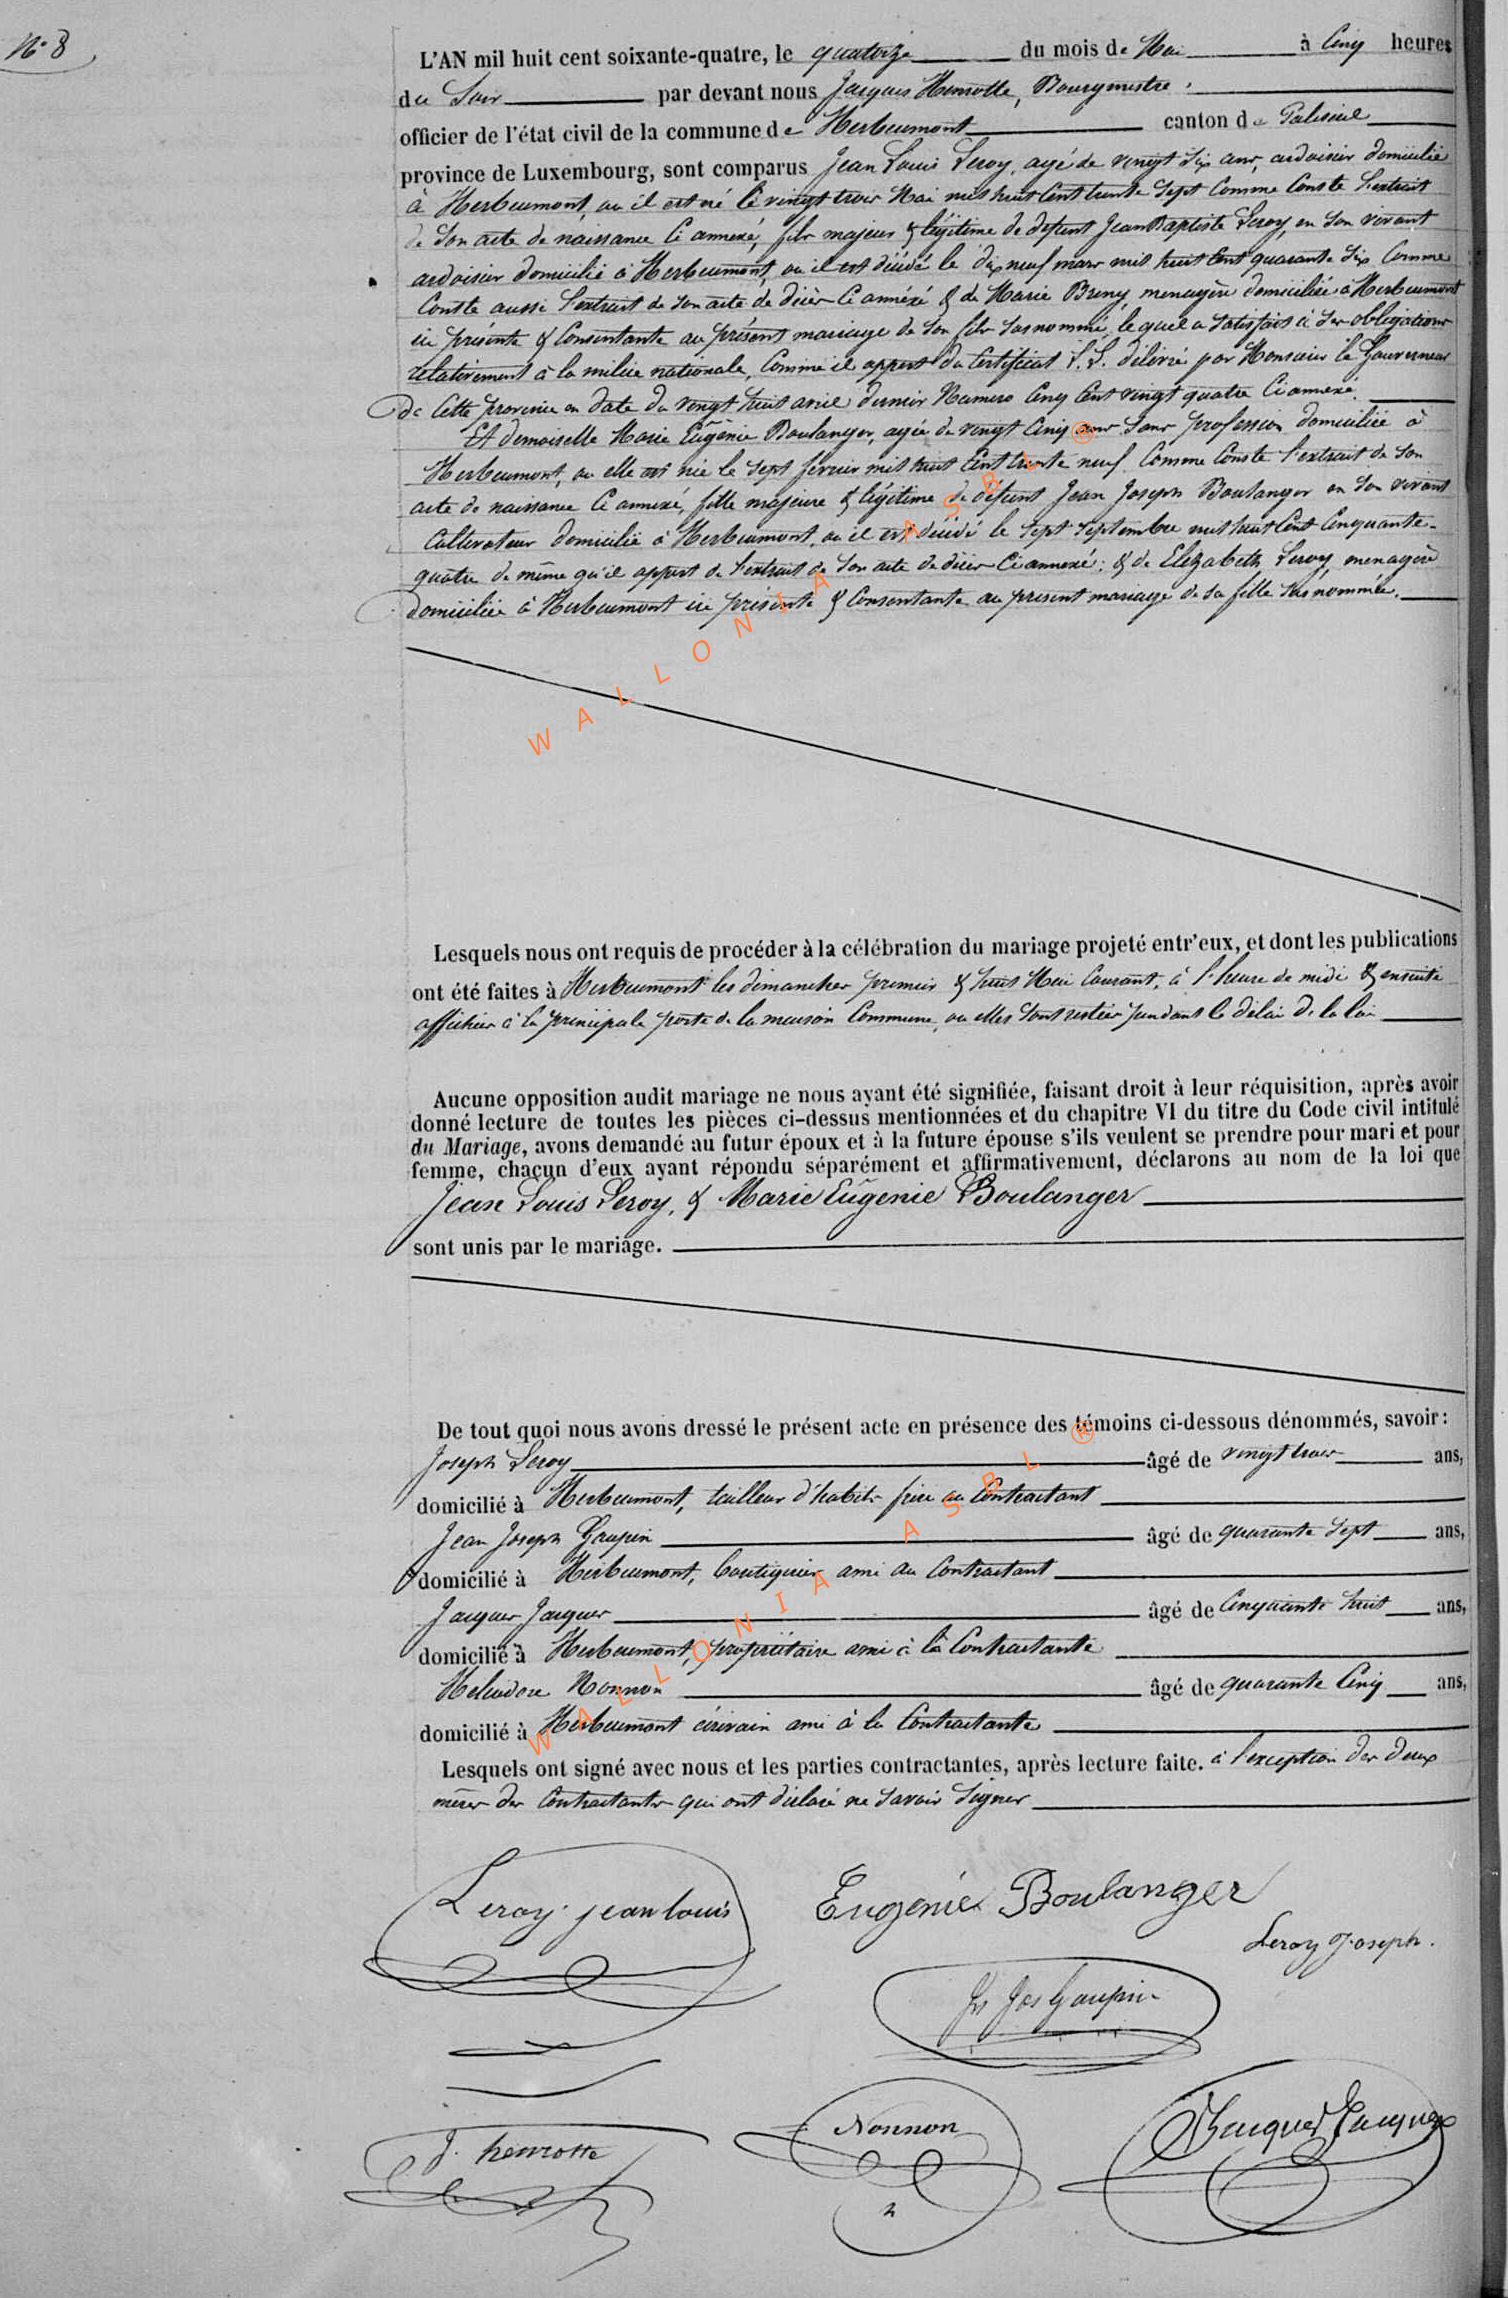 N° 8
L'AN mil huit cent soixante-quatre, le quatorze du mois de Mai à Cinq heures
du Soir par devant nous Jacques Henrotte, Bourgmestre
officier de l'état civil de la commune de Herbeumont canton de Paliseul
province de Luxembourg, sont comparus Jean Louis Leroy, agé de vingt six ans, ardoisier domicilié
à Herbeumont, ou il est né le vingt trois Mai mil huit Cent trente Sept Comme Conste l'extrait
de Son acte de naissance Ci annexé, fils majeur & légitime de defunt Jean Baptiste Leroy, en Son vivant
ardoisier domicilié à Herbeumont, ou il est décédé le dix neuf mars mil huit Cent quarante Six Comme
Conste aussi l'extrait de Son acte de décès Ci annéxé & de Marie Breny, menagère domiciliée à Herbeumont
ici présente & Consentante au présent mariage de Son fils Susnommé, le quel a Satisfait à Ses obligations
relativement à la milice nationale, Comme il appert du Certificat L. L. délivré par Monsieur le Gouverneur
de Cette province en date du vingt huit avril dernier Numero Cinq Cent vingt quatre Ci annexé.
Et demoiselle Marie Eugènie Boulanger, agée de vingt Cinq ans Sans profession domiciliée à
Herbeumont, ou elle est née le Sept février mil huit Cent trente neuf Comme Conste l'extrait de Son
acte de naissance Ci annexé, fille majeure & légitime de défunt Jean Joseph Boulanger en Son vivant
Cultivateur domicilié à Herbeumont, ou il est décédé le Sept Septembre mil huit Cent Cinquante-
quatre de même qu'il appert de l'extrait de Son acte de décès Ci annexé; & de Elizabeth Leroy, menagère
domiciliée à Herbeumont ici présente & Consentante au present mariage de Sa fille Susnommée.
Lesquels nous ont requis de procéder à la célébration du mariage projeté entr'eux, et dont les publications
ont été faites à Herbeumont les dimanches premier & huit Mai Courant, à l'heure de midi & ensuite
affichées à la principale porte de la maison Commune, ou elles Sont restées pendant le délai de la loi
Aucune opposition audit mariage ne nous ayant été signifiée, faisant droit à leur réquisition, après avoir
donné lecture de toutes les pièces ci-dessus mentionnées et du chapitre VI du titre du Code civil intitulé
du Mariage, avons demandé au futur époux et à la future épouse s'ils veulent se prendre pour mari et pour
femme, chacun d'eux ayant répondu séparément et affirmativement, déclarons au nom de la loi que
Jean Louis Leroy, & Marie Eugènie Boulanger
sont unis par le mariage.
De tout quoi nous avons dressé le présent acte en présence des témoins ci-dessous dénommés, savoir:
Joseph Leroy âgé de vingt trois ans,
domicilié à Herbeumont, tailleur d'habits frère au Contractant
Jean Joseph Gaupin âgé de quarante Sept ans,
domicilié à Herbeumont, boutiquier ami au Contractant
Jacques Jacques âgé de Cinquante huit ans,
domicilié à Herbeumont, propriétaire ami à la Contractante
Nonnon âgé de quarante Cinq ans,
domicilié à Herbeumont écrivain ami à la Contractante
Lesquels ont signé avec nous et les parties contractantes, après lecture faite. à l'exception des deux
mères des Contractants qui ont déclaré ne Savoir Signer
Leroy jean louis
Eugenie Boulanger
Leroy Joseph.
Jn Jos Gaupin
J. henrotte
Nonnon
Jacques Jacques
WALLONIA ASBL ®
WALLONIA ASBL ®